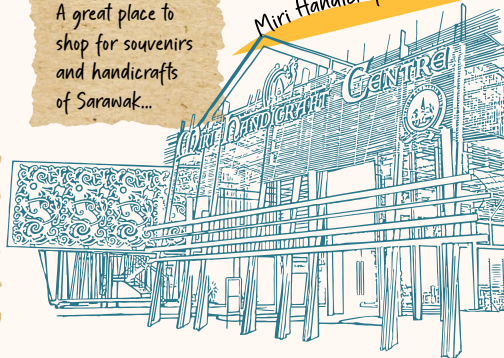 A great place to
shop for souvenirs
and handicrafts
of Sarawak...
Miri
MIRI HANDICRAFT CENTRE